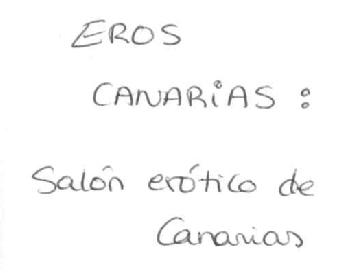 EROS
CANARiAS :
Salón erótico de
Canarias